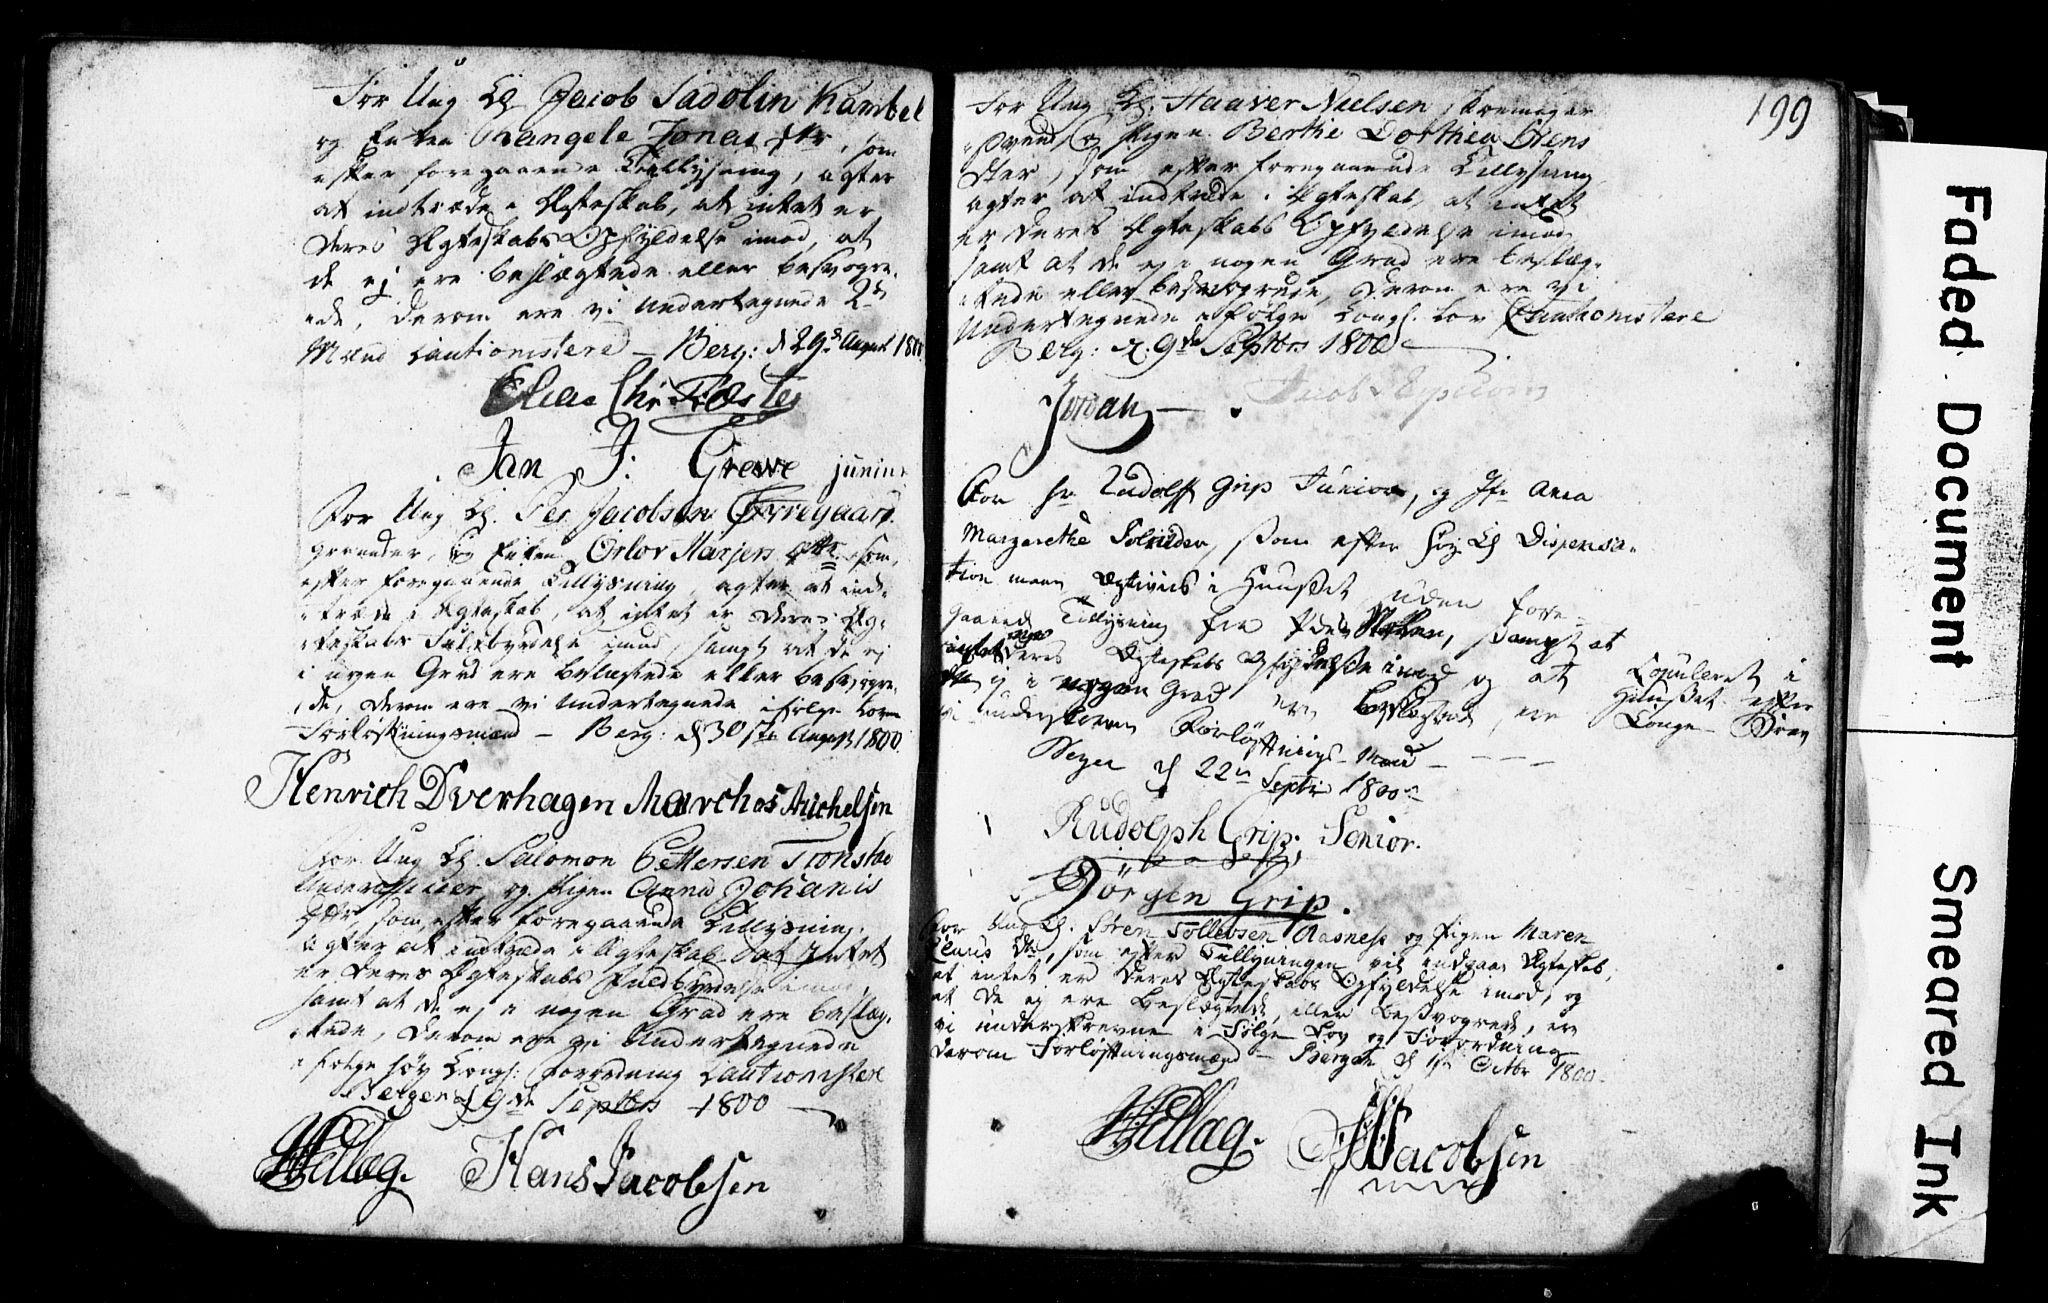 For Ung K. Jacob Sadolin Kambel
og Enken Rangele Jonas dtr, som
efter foregaaende Tillysning, agter
at indtræde i Ægteskab, at intet er
Deres Ægteskabs Opfyldelse imod, at
de ej ere beslægtede eller besvogre-
ede, derom ere vi Undertegnede 2de
Mænd Cautionistere – Berg: d 29de August 1800
Elias Chr:
Jan J: Grewe junior
For Ung K. Per Jacobsen
og Enken Orlor
efter foregaaende Tillysning, agter at ind-
træde i Ægteskab, at intet er Deres Æg-
teskabs Fuldbyrdelse imod, samt at de ej
i nogen Grad ere beslægtede eller besvogre-
de, derom ere vi Undertegnede ifølge Loven
Forløftningsmænd – Berg: d 30ste August 1800.
Henrich Dverhagen Marchos Michelsen
For Ung K. Salomon Pettersen Tronstad
Underofficer, og Pigen Anna Johanis
dttr som, efter foregaaende Tillysning,
agter at indtræde i Ægteskab, at Intet
er Deres Ægteskabs Fuldbyrdelse imod,
samt at de ej i nogen Grad ere beslæg-
tede, derom ere vi Undertegnede
ifølge høy Kongl: Forordning Cautionistere
Bergen d 9de Septbr 1800
Wellæg. Hans Jacobsen
199
For Ung K. Haaver Nielsen,
svend, og Pigen Berthe Dorthea
dter, som efter foregaaende Tillysning
agter at indtræde i Ægteskab, at intet
er Deres Ægteskabs Opfyldelse imod
samt at de ej i nogen Grad ere beslæg-
tede eller besvogrede, derom ere vi
Undertegnede ifølge Kongl. Lov Cautionistere
Berg: d. 9de Septbr 1800
Jordan – Jacob
For Hr Rudolff Grip Junior, og Jfr Anna
Margarethe, som efter høy K Dispensa-
tion maae Ægtevies i Huuset uden fore-
gaaende Tillysning fra Prædike Stolen, sampt at
intet Deres Ægteskabs Opfyldelse imod og at
de ej i nogen Grad ere beslægtede, ere
vi underskrevne Forløftnings-Mænd –
Bergen d 22de Septbr 1800
Copuleret i
Huuset efter
Konge-Brev
Rudolph Grip. Senior.
Jörgen Grip.
For Ung K. Sören Tollevsen Aasnese og Pigen Maren
Claus Dtr, som efter Tillysningen vil indgaae Ægteskab,
at intet er Deres Ægteskabs Opfyldelse imod, og
at de ej ere beslægtede, eller besvogrede, ere
vi underskrevne i Følge Lov og Forordning
derom Forløftningsmænd – Bergen d 1ste Octbr 1800.
Wellæg. Jacobsen
Faded Document
Smeared Ink